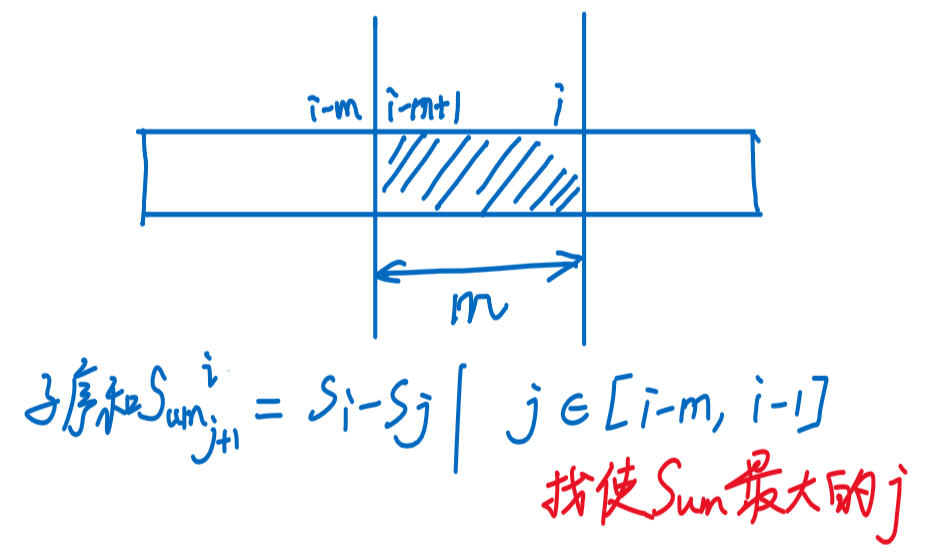 i-m i-m+1 i
m
子序和Sum_{j+1}^{i} = Si-Sj | j ∈ [i-m, i-1]
找使Sum最大的j